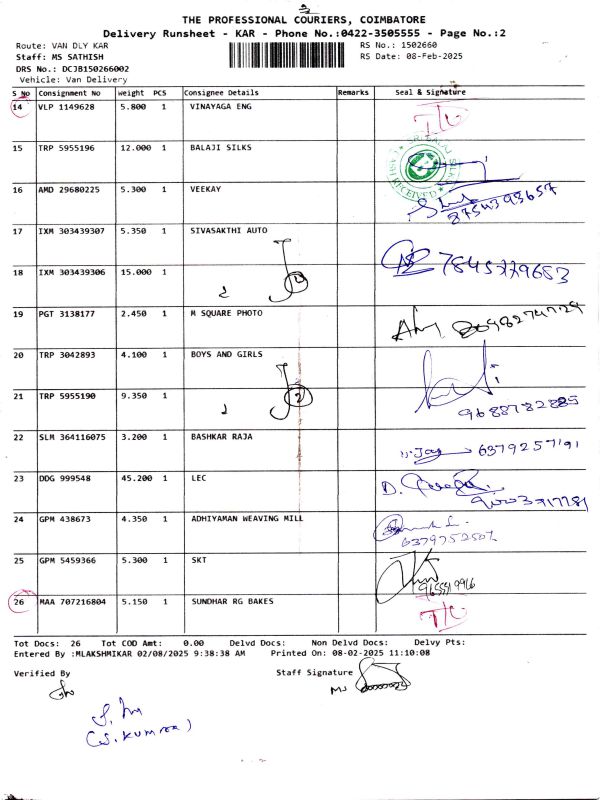 THE PROFESSIONAL COURIERS, COIMBATORE
Delivery Runsheet - KAR - Phone No.:0422-3505555 - Page No.:2
Route: VAN DLY KAR RS No.: 1502660
Staff: MS SATHISH RS Date: 08-Feb-2025
DRS No.: DCJB150266002
Vehicle: Van Delivery
S No Consignment No weight PCS Consignee Details Remarks Seal & Signature
14 VLP 1149628 5.800 1 VINAYAGA ENG
15 TRP 5955196 12.000 1 BALAJI SILKS
RECEIVED
16 AMD 29680225 5.300 1 VEEKAY
8754393657
17 IXM 303439307 5.350 1 SIVASAKTHI AUTO
7845779653
18 IXM 303439306 15.000 1
2
19 PGT 3138177 2.450 1 M SQUARE PHOTO
20 TRP 3042893 4.100 1 BOYS AND GIRLS
21 TRP 5955190 9.350 1
2 2
9688782885
22 SLM 364116075 3.200 1 BASHKAR RAJA
6379257191
23 DDG 999548 45.200 1 LEC
24 GPM 438673 4.350 1 ADHIYAMAN WEAVING MILL
6379752507
25 GPM 5459366 5.300 1 SKT
26 MAA 707216804 5.150 1 SUNDHAR RG BAKES
Tot Docs: 26 Tot COD Amt: 0.00 Delvd Docs: Non Delvd Docs: Delvy Pts:
Entered By :MLAKSHMIKAR 02/08/2025 9:38:38 AM Printed On: 08-02-2025 11:10:08
Verified By Staff Signature